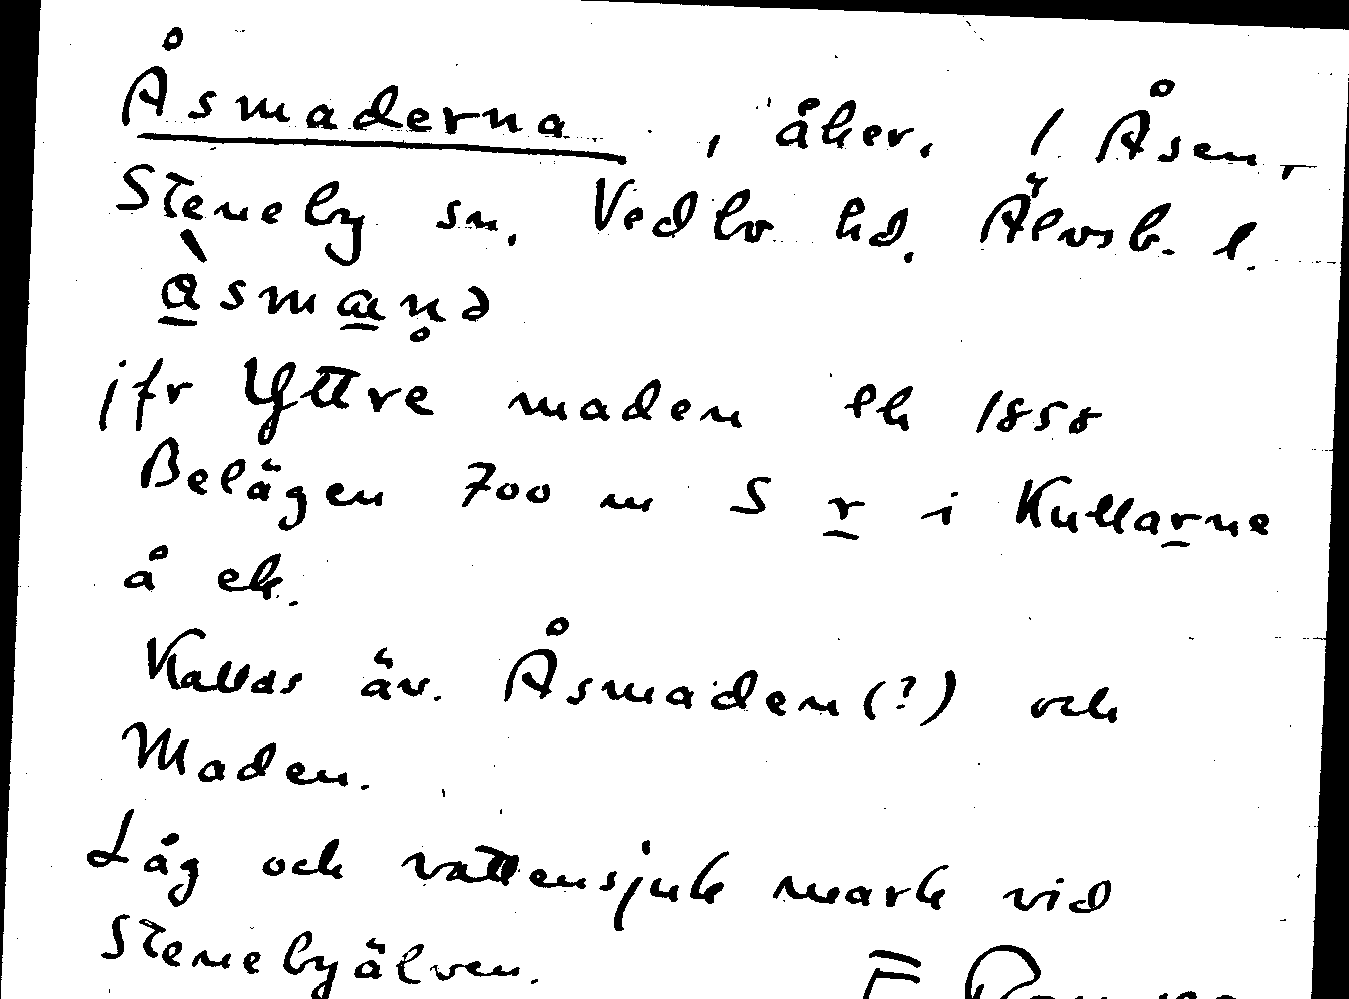 Åsmaderna, åker, / Åsen,
Steneby sn, Vedbo hd, Älvsb. l.
jfr Yttre maden ek 1858
Belägen 700 m S r i Kullarne
å ek.
Kallas äv. Åsmaden (?) och
Maden.
Låg och vattensjuk mark vid
Stenebyälven.